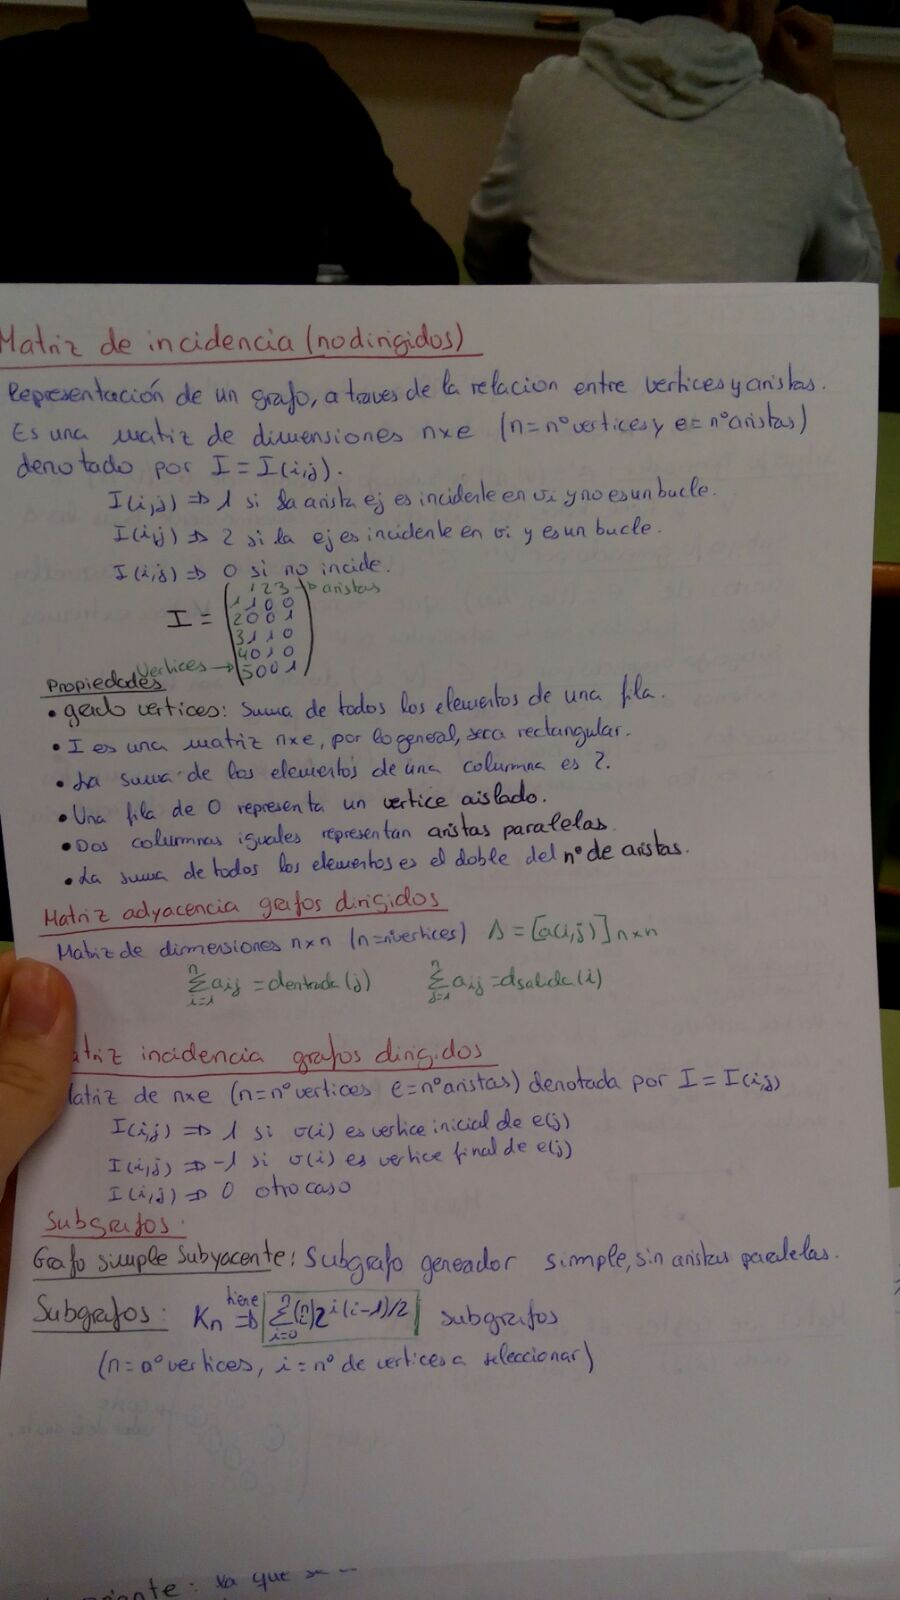 Matriz de incidencia (no dirigidos)
Representación de un grafo, a traves de la relacion entre vertices y aristas.
Es una matriz de dimensiones nxe (n=nº vertices y e=nº aristas)
denotado por I = I(i,j).
I(i,j) => 1 si la arista ej es incidente en vi y no es un bucle.
I(i,j) => 2 si la ej es incidente en vi y es un bucle.
I(i,j) => 0 si no incide.
1 2 3 -> aristas
1 1 0 0
I = 2 0 0 1
3 1 1 0
4 0 1 0
Vertices -> 5 0 0 1
Propiedades
• grado vertices: Suma de todos los elementos de una fila.
• I es una matriz nxe, por lo general, sera rectangular.
• La suma de los elementos de una columna es 2.
• Una fila de 0 representa un vertice aislado.
• Dos columnas iguales representan aristas paralelas.
• La suma de todos los elementos es el doble del nº de aristas.
Matriz adyacencia grafos dirigidos
Matriz de dimensiones nxn (n=nºvertices) A = [a(i,j)] n x n
n∑i=1 aij = dentrada(j) n∑j=1 aij = dsalida(i)
atriz incidencia grafos dirigidos
atriz de nxe (n=nº vertices e=nº aristas) denotada por I = I(i,j)
I(i,j) => 1 si v(i) es vertice inicial de e(j)
I(i,j) => -1 si v(i) es vertice final de e(j)
I(i,j) => 0 otro caso
Subgrafos.
Grafo simple Subyacente: Subgrafo generador simple, sin aristas paralelas.
Subgrafos: Kn tiene => n∑i=0 (n i) 2^i(i-1)/2 subgrafos
(n=nº vertices, i=nº de vertices a seleccionar)
: ya que se